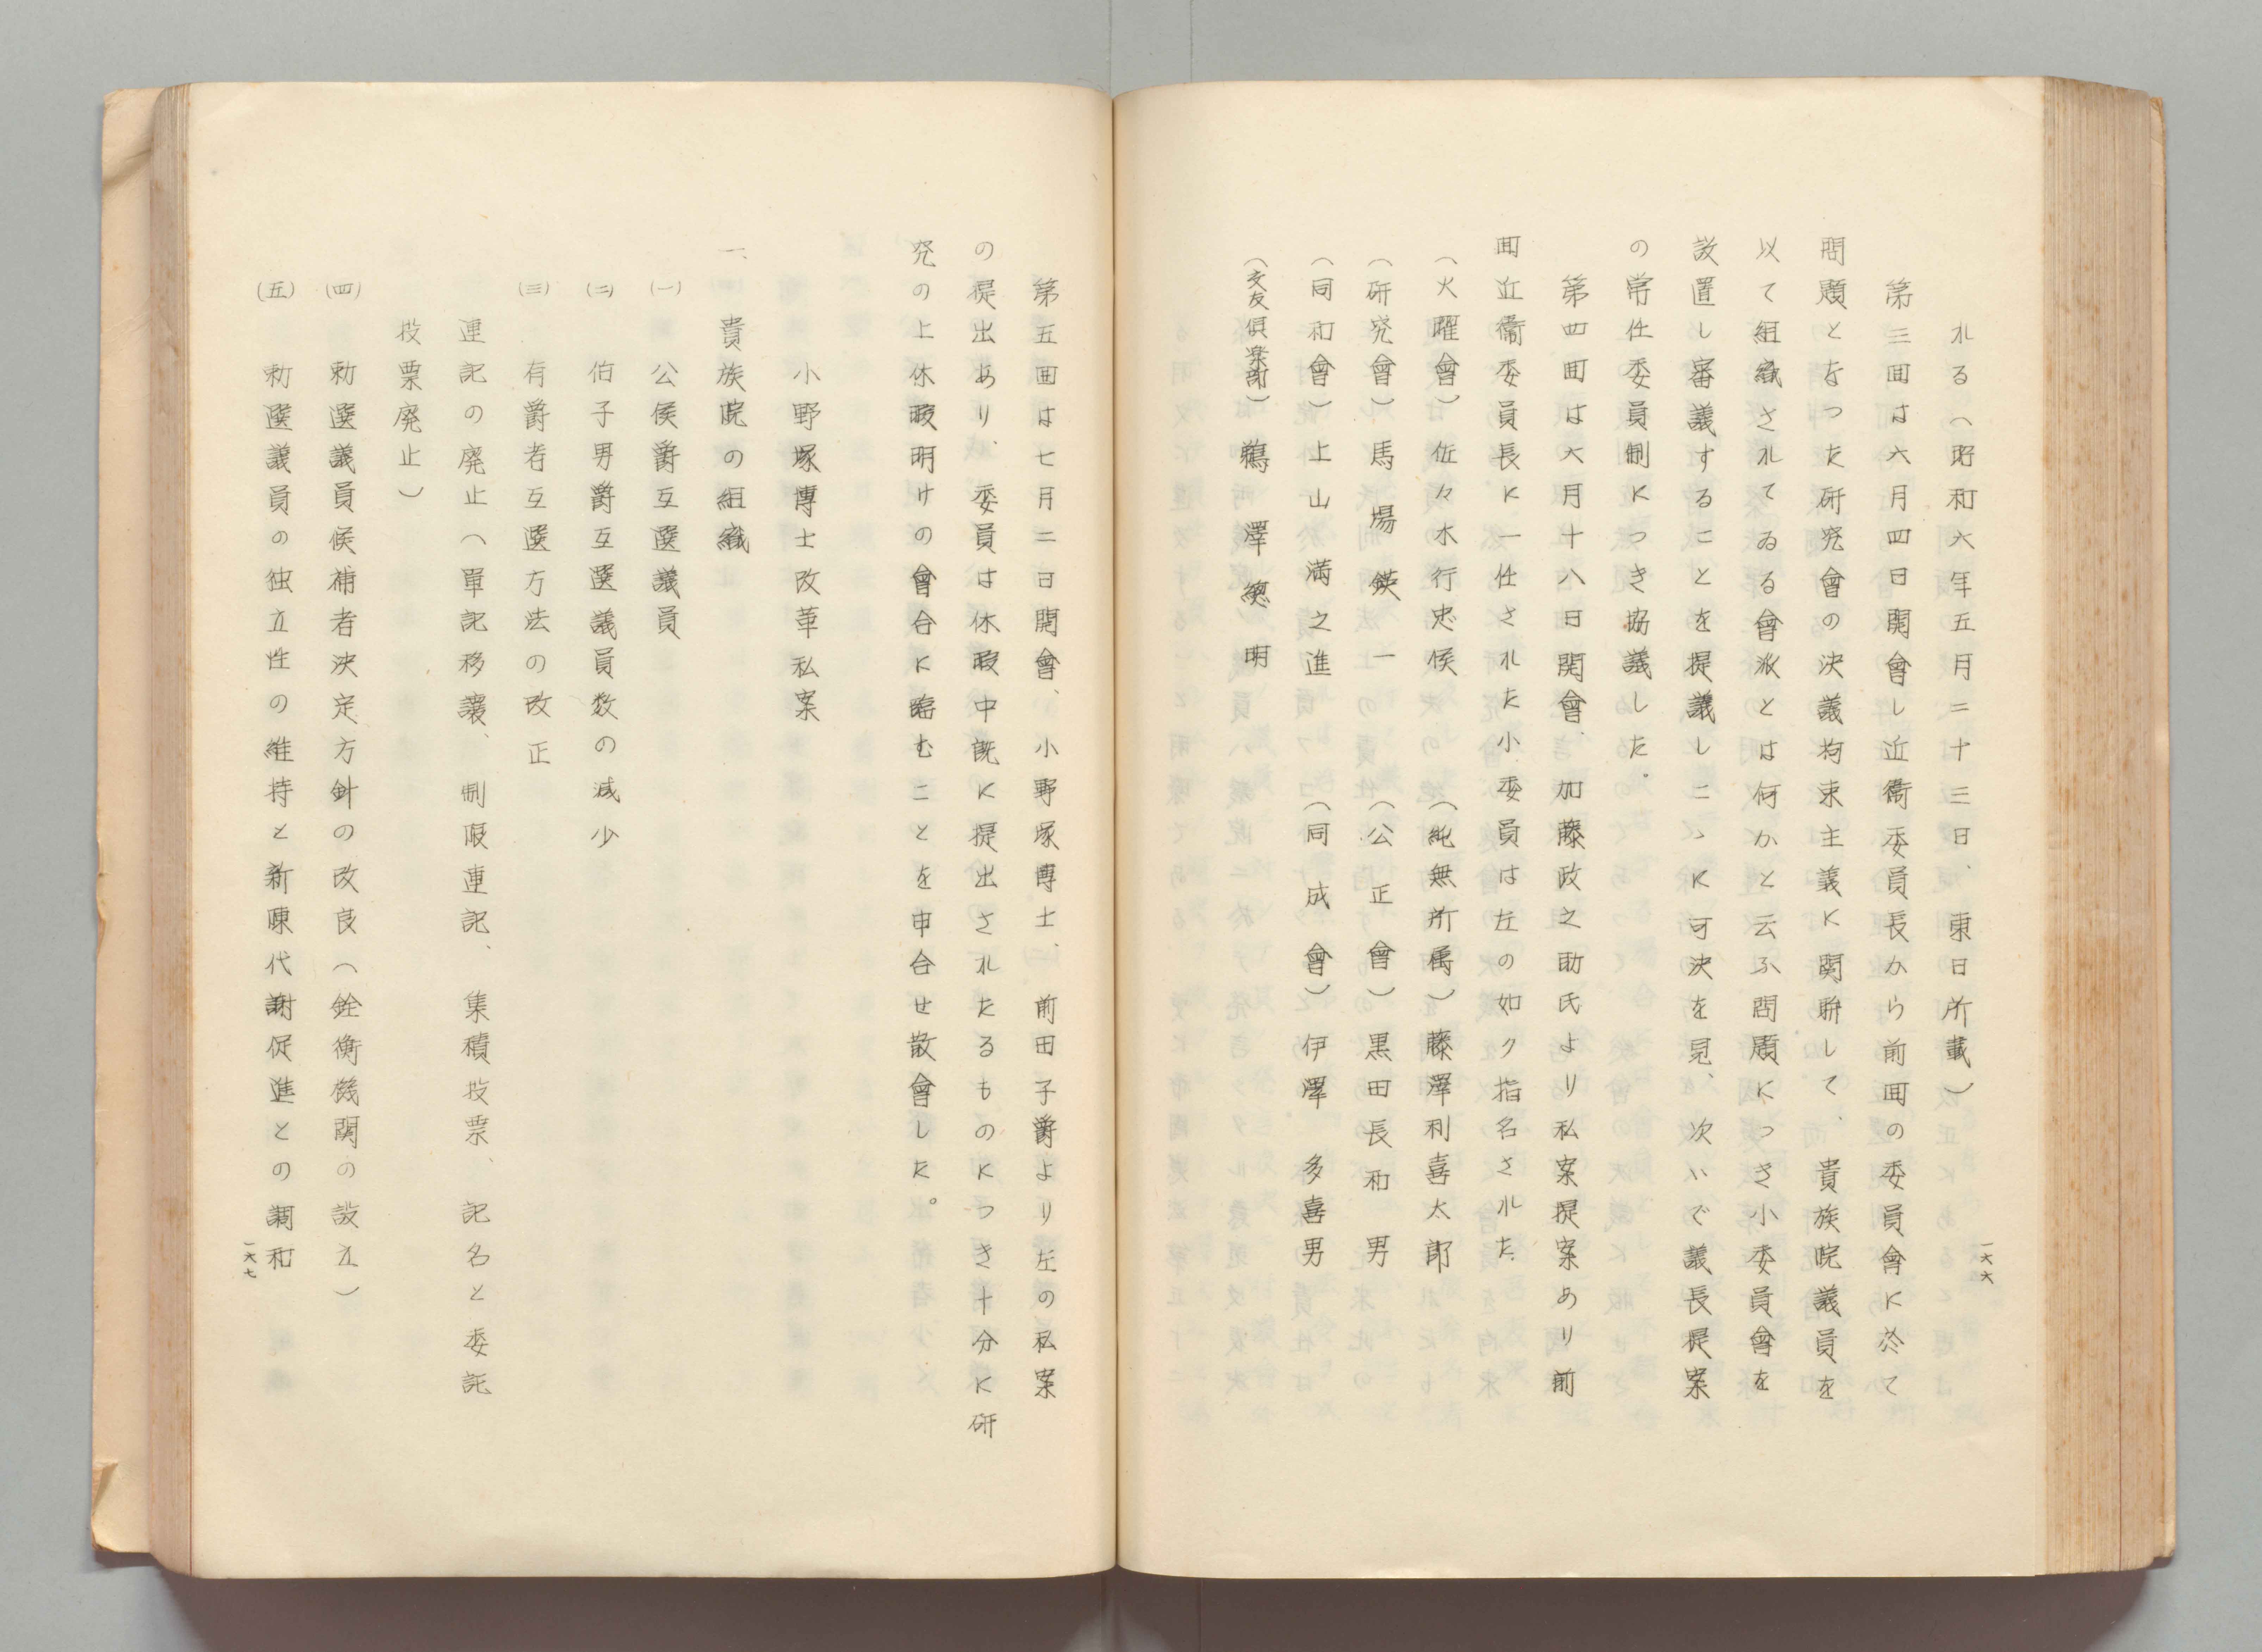 れる（昭和六年五月二十三日、東日所載）
第三囬は六月四日開會し近衞委員長から前囬の委員會に於て
問題となつた研究會の決議拘束主義に関聯して、貴族院議員を
以て組織されてゐる會派とは何かと云ふ問題につき小委員會を
設置し審議することを提議しこゝに可決を見、次いで議長提案
の常任委員制につき協議した。
第四囬は六月十八日開會、加藤政之助氏より私案提案あり前
囬近衞委員長に一任された小委員は左の如ク指名された
（火曜會）佐々木行忠侯　（純無所属）藤澤利喜太郎
（研究會）馬場鍈一　（公正會）黒田長和男
（同和會）上山満之進　（同成會）伊澤多喜男
（交友倶楽部）鵜澤總明
一六六
第五囬は七月二日開會、小野塚博士、前田子爵より左の私案
の提出あり、委員は休暇中既に提出されたるものにつき十分に研
究の上休暇明けの會合に臨むことを申合せ散會した。
小野塚博士改革私案
一、貴族院の組織
（一）公侯爵互選議員
（二）伯子男爵互選議員数の減少
（三）有爵者互選方法の改正
連記の廃止（單記移讓、制限連記、集積投票、記名と委託
投票廃止）
（四）勅選議員候補者決定方針の改良（銓衡機関の設立）
（五）勅選議員の独立性の維持と新陳代謝促進との調和
一六七